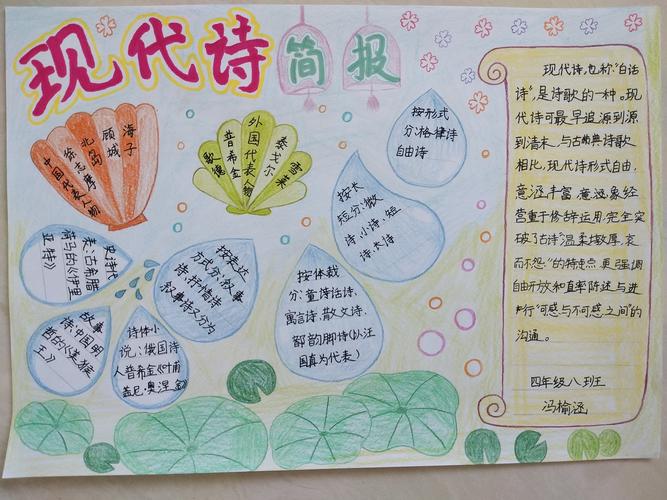 现代诗简报
中国代表人物
徐志摩
北岛
顾城
海子
歌德
普希金
外国代表人物
泰戈尔
雪莱
按形式
分:格律诗
自由诗
按长
短分:微
诗、小诗、短
诗、长诗
按表达
方式分:叙事
诗、抒情诗
叙事诗又分为
史诗代
表:古希腊
荷马的《伊里
亚特》
故事
诗:中国明
哲的《
王》
诗体小
说:俄国诗
人普希金《叶甫
盖尼·奥涅金》
按体裁
分:童话诗、
寓言诗、散文诗、
韵脚诗(以汪
国真为代表)
现代诗,也称“白话
诗”,是诗歌的一种。现
代诗可最早追源到源
到清末,与古典诗歌
相比,现代诗形式自由,
意涵丰富,意象经
营重于修辞运用,完全突
破了古诗“温柔敦厚,哀
而不怨”的特点,更强调
自由开放和直率陈述与进
行“可感与不可感之间”的
沟通。
四年级八班
冯榆涵